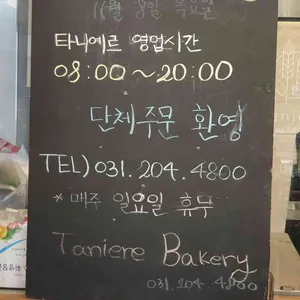 11월 8일 목요일
타니에르 영업시간
08:00~20:00
단체주문 환영
TEL) 031.204.4800
* 매주 일요일 휴무
Taniere Bakery
031.204.4800